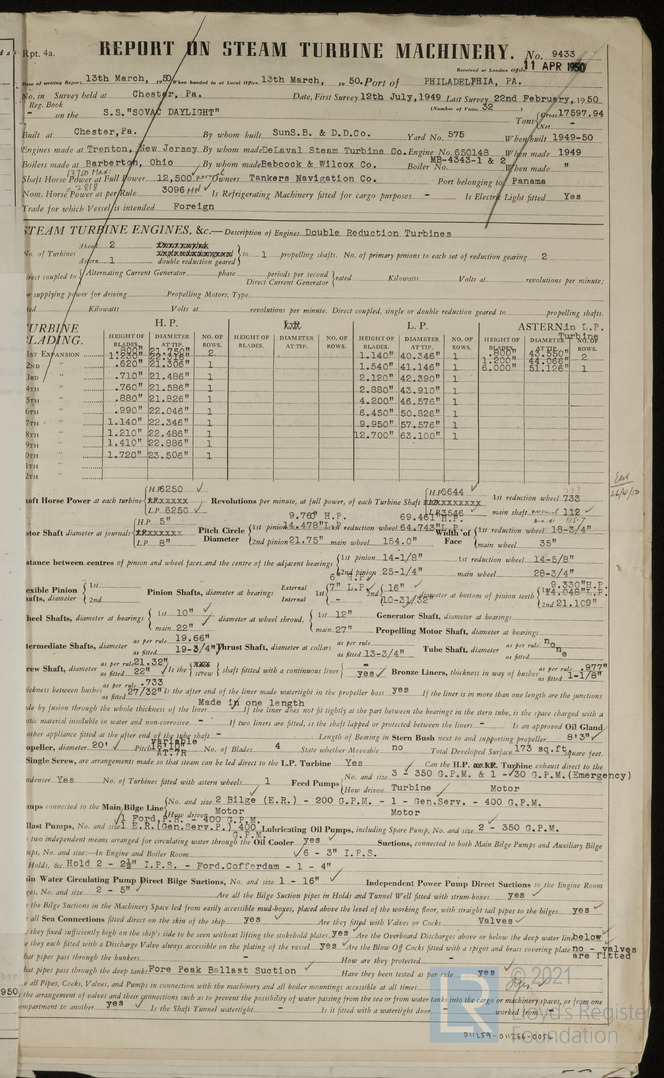 Rpt. 4a.
REPORT ON STEAM TURBINE MACHINERY. No. 9433
Received at London Office 11 APR 1950
Date of writing Report 13th March, 1950 When handed in at Local Office 13th March, 1950. Port of PHILADELPHIA, PA.
No. in Survey held at Chester, Pa. Date, First Survey 12th July, 1949 Last Survey 22nd February, 1950
Reg. Book (Number of Visits 32
- on the S.S. "SOVAC DAYLIGHT" Tons Gross 17597.94
Net -
Built at Chester, Pa. By whom built Sun S.B. & D.D.Co. Yard No. 575 When built 1949-50
Engines made at Trenton, New Jersey By whom made DeLaval Steam Turbine Co. Engine No. 650148 When made 1949
Boilers made at Barberton, Ohio By whom made Babcock & Wilcox Co. Boiler No. MB-4343-1 & 2 When made "
Shaft Horse Power at Full Power 12,500 Owners Tankers Navigation Co. Port belonging to Panama
Nom. Horse Power as per Rule 3096 MN Is Refrigerating Machinery fitted for cargo purposes - Is Electric Light fitted Yes
Trade for which Vessel is intended Foreign
STEAM TURBINE ENGINES, &c.—Description of Engines Double Reduction Turbines
No. of Turbines Ahead 2 Astern 1 double reduction geared to 1 propelling shafts. No. of primary pinions to each set of reduction gearing 2
direct coupled to Alternating Current Generator phase periods per second Direct Current Generator rated Kilowatts Volts at revolutions per minute;
for supplying power for driving Propelling Motors, Type
rated Kilowatts Volts at revolutions per minute. Direct coupled, single or double reduction geared to propelling shafts.
TURBINE BLADING. H. P. L. P. ASTERN in L.P. Turbine
HEIGHT OF BLADES. DIAMETER AT TIP. NO. OF ROWS. HEIGHT OF BLADES. DIAMETER AT TIP. NO. OF ROWS. HEIGHT OF BLADES. DIAMETER AT TIP. NO. OF ROWS. HEIGHT OF BLADES. DIAMETER AT TIP. NO. OF ROWS.
1ST EXPANSION 2 1.140" 40.346" 1 .800" 43.550" 1.200" 44.066" 2
2ND " .620" 21.306" 1 1.540" 41.146" 1 6.000" 51.126" 1
3RD " .710" 21.486" 1 2.120" 42.390" 1
4TH " .760" 21.586" 1 2.880" 43.910" 1
5TH " .880" 21.826" 1 4.200" 46.576" 1
6TH " .990" 22.046" 1 6.450" 50.826" 1
7TH " 1.140" 22.346" 1 9.950" 57.576" 1
8TH " 1.210" 22.486" 1 12.700" 63.100" 1
9TH " 1.410" 22.886" 1
10TH " 1.720" 23.506" 1
Shaft Horse Power at each turbine H.P. 6250 L.P. 6250 Revolutions per minute, at full power, of each Turbine Shaft H.P. 5644 L.P. 3546 1st reduction wheel 733 main shaft 112
Rotor Shaft diameter at journals H.P. 5" L.P. 8" Pitch Circle Diameter 1st pinion 9.763" H.P. 14.478" L.P. 2nd pinion 21.75" 1st reduction wheel 69.461 H.P. 64.743" L.P. main wheel 154.0" Width of Face 1st reduction wheel 18-3/4" main wheel 35"
Distance between centres of pinion and wheel faces and the centre of the adjacent bearings 1st pinion 14-1/8" 2nd pinion 25-1/4" 1st reduction wheel 14-5/8" main wheel 28-3/4"
Flexible Pinion Shafts, diameter 1st 2nd Pinion Shafts, diameter at bearings External Internal 1st 6" H.P. 7" L.P. - 2nd 16" 10-31/32 diameter at bottom of pinion teeth 1st 9.330" H.P. 14.048" L.P. 2nd 21.109"
Wheel Shafts, diameter at bearings 1st 10" main 22" diameter at wheel shroud, 1st 12" main 27" Generator Shaft, diameter at bearings
Propelling Motor Shaft, diameter at bearings
Intermediate Shafts, diameter as per rule 19.66" as fitted 19-3/4" Thrust Shaft, diameter at collars as per rule as fitted 13-3/4" Tube Shaft, diameter as per rule as fitted none
Screw Shaft, diameter as per rule 21.32" as fitted 22" Is the screw shaft fitted with a continuous liner yes Bronze Liners, thickness in way of bushes as per rule .977" as fitted 1-1/8"
Thickness between bushes as per rule .733 as fitted 27/32" Is the after end of the liner made watertight in the propeller boss yes If the liner is in more than one length are the junctions
made by fusion through the whole thickness of the liner Made in one length If the liner does not fit tightly at the part between the bearings in the stern tube, is the space charged with a
plastic material insoluble in water and non-corrosive - If two liners are fitted, is the shaft lapped or protected between the liners - Is an approved Oil Gland
or other appliance fitted at the after end of the tube shaft - Length of Bearing in Stern Bush next to and supporting propeller 8'3"
Propeller, diameter 20' Pitch Variable AT.7R No. of Blades 4 State whether Moveable no Total Developed Surface 173 sq.ft. square feet.
If Single Screw, are arrangements made so that steam can be led direct to the L.P. Turbine Yes Can the H.P. Turbine exhaust direct to the
Condenser Yes No. of Turbines fitted with astern wheels 1 Feed Pumps No. and size 3 - 350 G.P.M. & 1 - 30 G.P.M. (Emergency)
How driven Turbine Motor
Pumps connected to the Main Bilge Line No. and size 2 Bilge (E.R.) - 200 G.P.M. - 1 - Gen.Serv. - 400 G.P.M.
How driven Motor Motor
Ballast Pumps, No. and size 1 Ford P.R. - 400 G.P.M. 1 E.R.(Gen.Serv.P.) 400 G.P.M. Lubricating Oil Pumps, including Spare Pump, No. and size 2 - 350 G.P.M.
Are two independent means arranged for circulating water through the Oil Cooler yes Suctions, connected to both Main Bilge Pumps and Auxiliary Bilge
Pumps, No. and size:—In Engine and Boiler Room 6 - 3" I.P.S.
In Holds, &c. Hold 2 - 2½" I.P.S. - Ford.Cofferdam - 1 - 4"
Main Water Circulating Pump Direct Bilge Suctions, No. and size 1 - 16" Independent Power Pump Direct Suctions to the Engine Room
Bilges, No. and size 2 - 5" Are all the Bilge Suction pipes in Holds and Tunnel Well fitted with strum-boxes yes
Are the Bilge Suctions in the Machinery Space led from easily accessible mud-boxes, placed above the level of the working floor, with straight tail pipes to the bilges yes
Are all Sea Connections fitted direct on the skin of the ship yes Are they fitted with Valves or Cocks Valves
Are they fixed sufficiently high on the ship's side to be seen without lifting the stokehold plates yes Are the Overboard Discharges above or below the deep water line below
Are they each fitted with a Discharge Valve always accessible on the plating of the vessel yes Are the Blow Off Cocks fitted with a spigot and brass covering plate no - valves are fitted
What pipes pass through the bunkers How are they protected -
What pipes pass through the deep tanks Fore Peak Ballast Suction Have they been tested as per rule yes
Are all Pipes, Cocks, Valves, and Pumps in connection with the machinery and all boiler mountings accessible at all times yes
Is the arrangement of valves and their connections such as to prevent the possibility of water passing from the sea or from water tanks into the cargo or machinery spaces, or from one
compartment to another yes Is the Shaft Tunnel watertight - Is it fitted with a watertight door - worked from -
© 2021
Lloyd's Register
Foundation
LR
011259-011266-0054